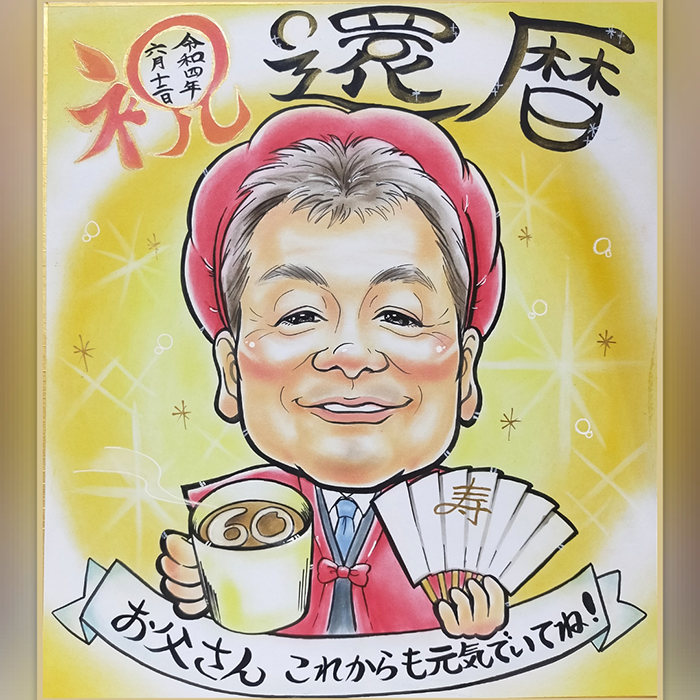 祝 還暦
令和四年
六月十二日
60
寿
お父さん これからも元気でいてね!